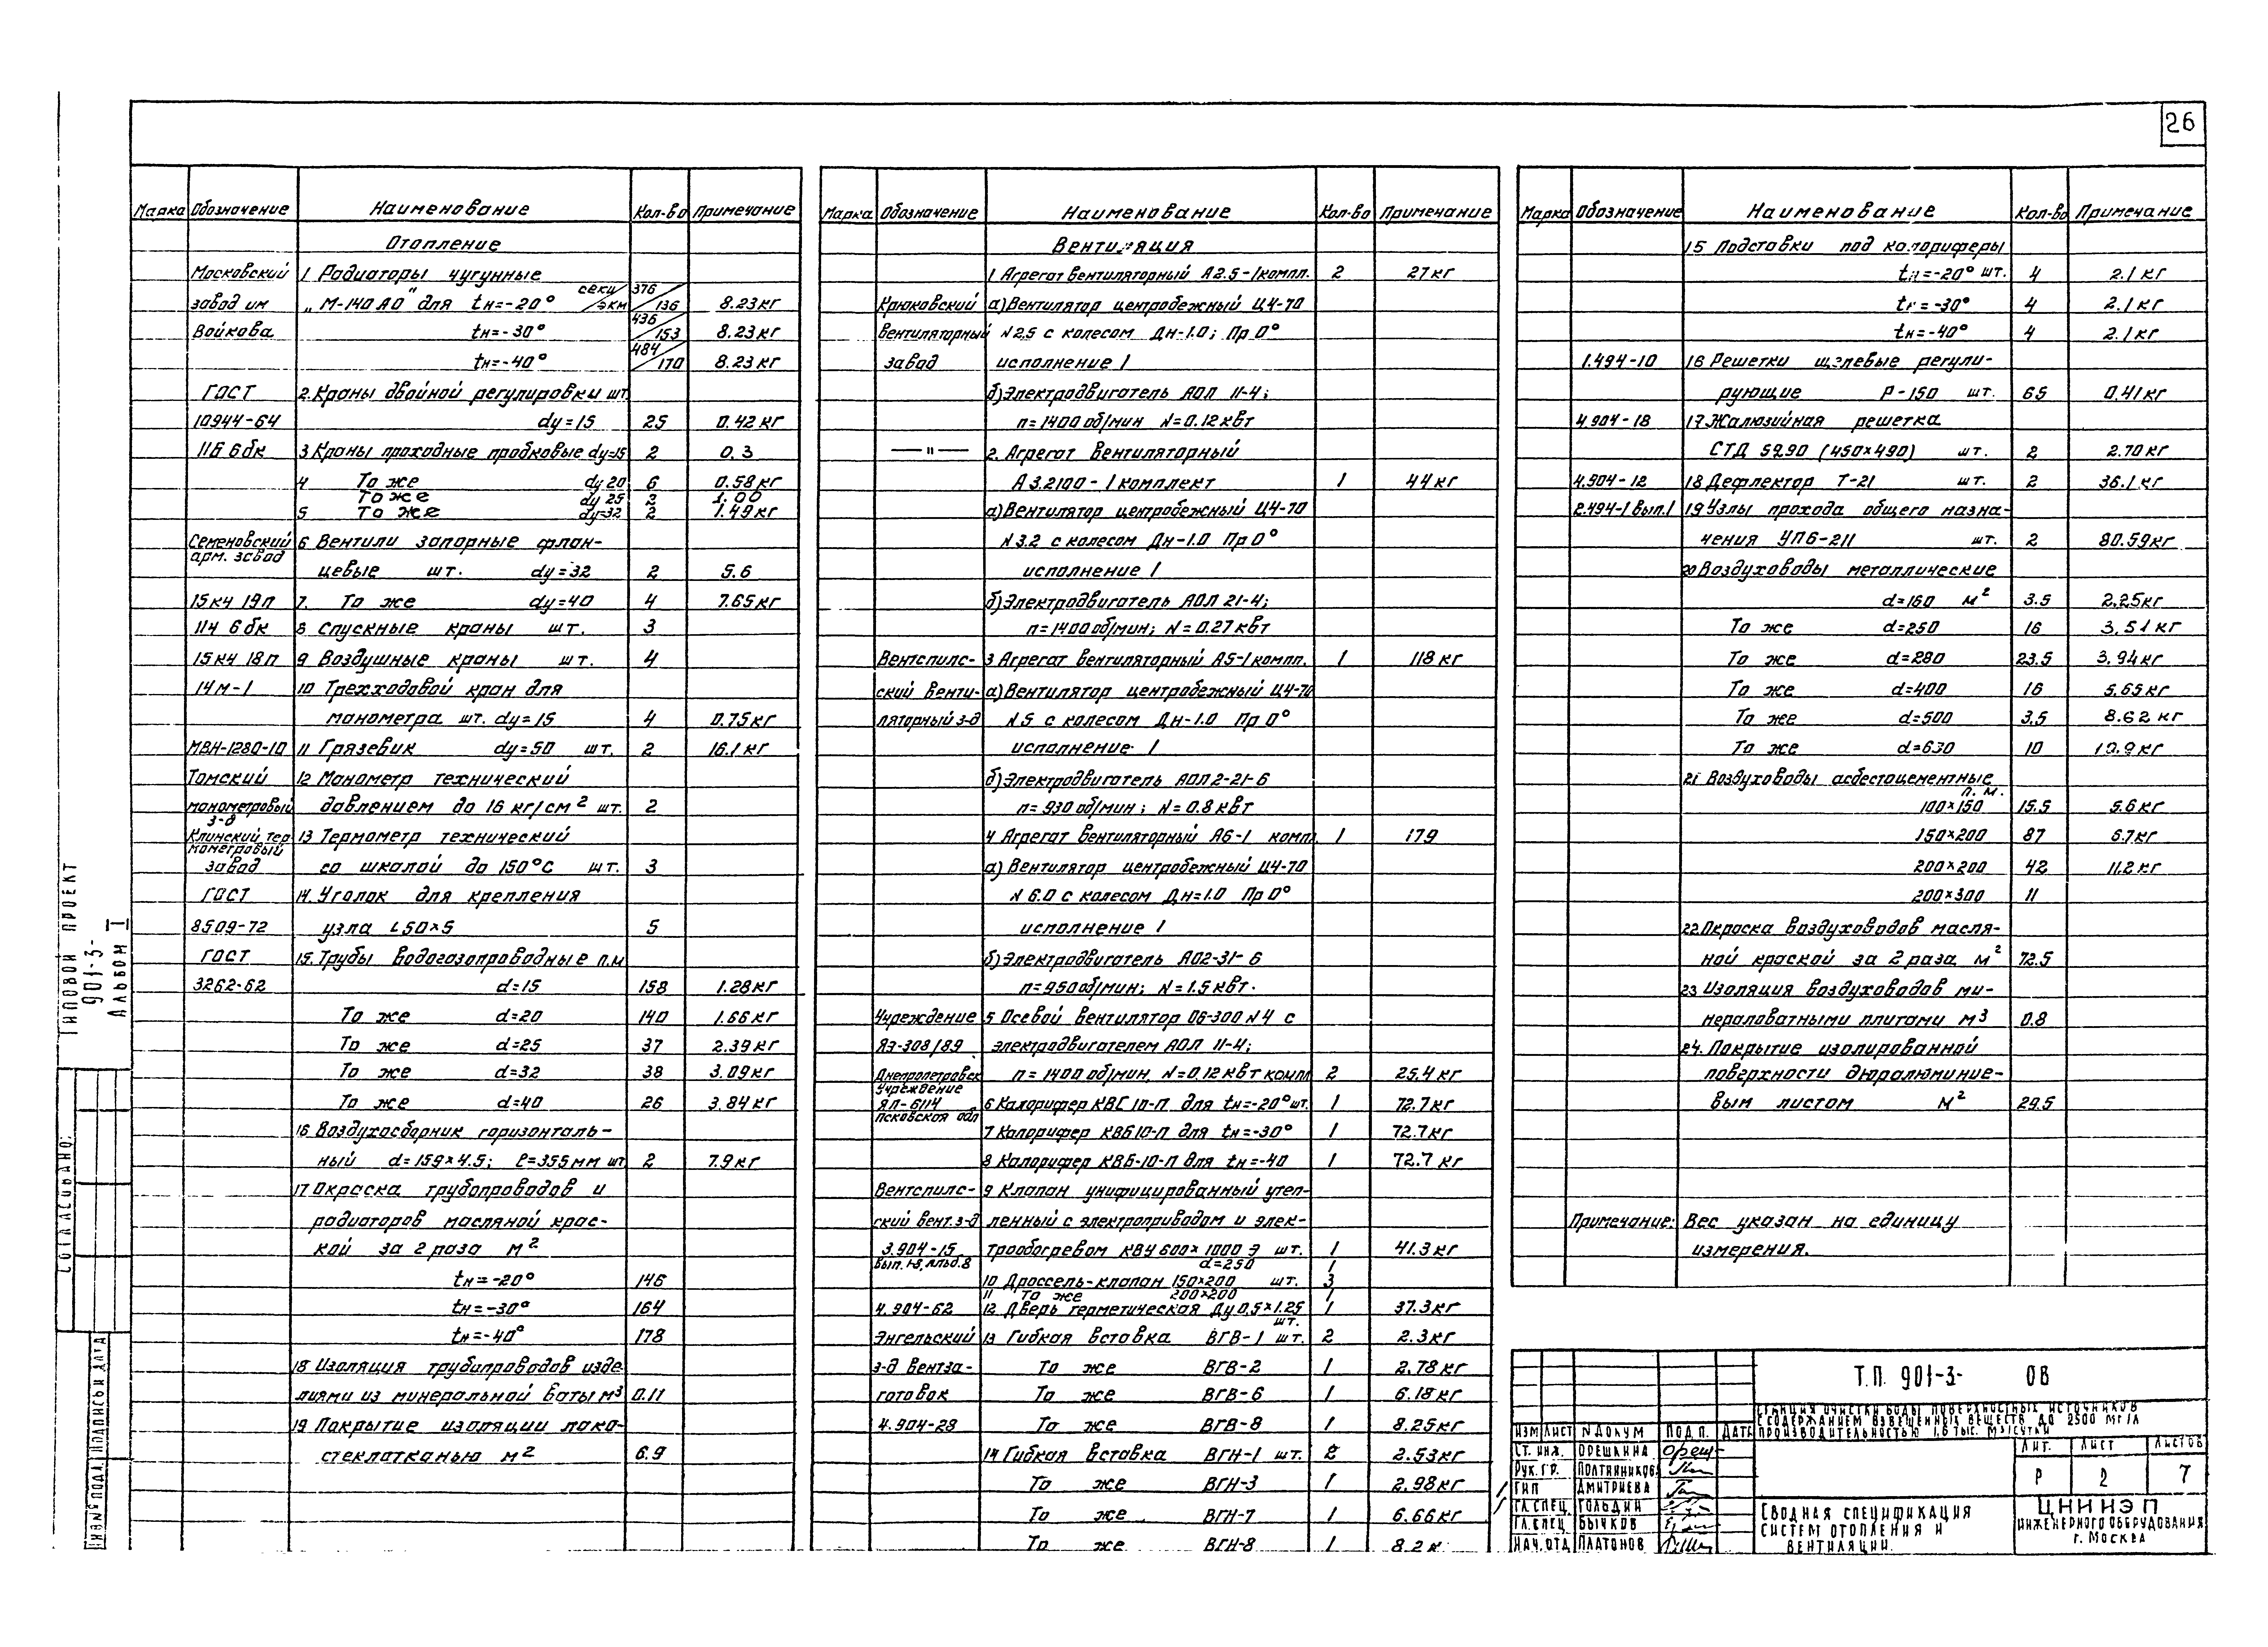 26
Марка Обозначение Наименование Кол-во Примечание
Отопление
Московский 1 Радиаторы чугунные
завод им „М-140 АО" для tн=-20° секц/экм 376/136 8.23кг
Войкова tн=-30° 436/153 8.23кг
tн=-40° 484/170 8.23кг
ГОСТ 2. Краны двойной регулировки шт
10944-64 dу=15 25 0.42кг
11Б 6бк 3 Краны проходные пробковые dу=15 2 0.3
4 То же dу 20 6 0.58кг
То же dу 25 2 1.00
5 То же dу=32 2 1.49кг
Семеновский 6 Вентили запорные флан-
арм. завод
цевые шт. dу=32 2 5.6
15кч 19п 7. То же dу=40 4 7.65кг
11ч 6бк 8 Спускные краны шт. 3
15кч 18п 9 Воздушные краны шт. 4
14м-1 10 Трехходовой кран для
манометра шт. dу=15 4 0.75кг
МВН-1280-10 11 Грязевик dу=50 шт. 2 16.1кг
Томский 12 Манометр технический
манометровый давлением до 16 кг/см² шт. 2
з-д
Клинский тер 13 Термометр технический
мометровый
завод со шкалой до 150°С шт. 3
ГОСТ 14. Уголок для крепления
8509-72 узла L50×5 5
ГОСТ 15. Трубы водогазопроводные п.м
3262-62 d=15 158 1.28кг
То же d=20 140 1.66кг
То же d=25 37 2.39кг
То же d=32 38 3.09кг
То же d=40 26 3.84кг
16 Воздухосборник горизонталь-
ный d=159×4.5; ℓ=355мм шт 2 7.9кг
17 Окраска трубопроводов и
радиаторов масляной крас-
кой за 2 раза м²
tн=-20° 146
tн=-30° 164
tн=-40° 178
18 Изоляция трубопроводов изде-
лиями из минеральной ваты м³ 0.11
19 Покрытие изоляции лако-
стеклотканью м² 6.9
Марка Обозначение Наименование Кол-во Примечание
Вентиляция
1 Агрегат вентиляторный А2.5-1 компл. 2 27кг
Крюковский а) Вентилятор центробежный Ц4-70
вентиляторный N2,5 с колесом Дн-1.0; Пр 0°
завод исполнение 1
б) Электродвигатель АОЛ 11-4;
n=1400 об/мин N=0.12квт
—"— 2. Агрегат вентиляторный
А 3.2100-1 комплект 1 44кг
а) Вентилятор центробежный Ц4-70
N3.2 с колесом Дн-1.0 Пр 0°
исполнение 1
б) Электродвигатель АОЛ 21-4;
n=1400об/мин; N=0.27квт
Вентспилс- 3 Агрегат вентиляторный А5-1компл. 1 118кг
ский венти- а) Вентилятор центробежный Ц4-70
ляторный з-д N5 с колесом Дн-1.0 Пр 0°
исполнение 1
б) Электродвигатель АОЛ2-21-6
n=930об/мин; N=0.8квт
4 Агрегат вентиляторный А6-1 компл. 1 179
а) Вентилятор центробежный Ц4-70
N6.0 с колесом Дн=1.0 Пр 0°
исполнение 1
б) Электродвигатель АО2-31-6
n=950об/мин; N=1.5квт.
Учреждение 5 Осевой вентилятор 06-300 N4 с
ЯЭ-308/89 электродвигателем АОЛ 11-4;
Днепропетровск n=1400об/мин, N=0,12квт компл 2 25.4кг
учреждение
ЯЛ-6114 6 Калорифер КВС 10-П для tн=-20° шт. 1 72.7кг
Псковская обл
7 Калорифер КВБ10-П для tн=-30° 1 72.7кг
8 Калорифер КВБ-10-П для tн=-40 1 72.7кг
Вентспилс- 9 Клапан унифицированный утеп-
ский вент.з-д ленный с электроприводом и элек-
3.904-15 трообогревом КВУ 600×1000 Э шт. 1 41.3кг
вып. 1-8, альб.8 d=250 1
10 Дроссель-клапан 150×200 шт. 3
11 То же 200×200 1
4.904-62 12 Дверь герметическая Ду 0,5×1.25 1 37.3кг
шт.
Энгельский 13 Гибкая вставка ВГВ-1 шт. 2 2.3кг
з-д вентза- То же ВГВ-2 1 2.78кг
готовок То же ВГВ-6 1 6.18кг
4.904-28 То же ВГВ-8 1 8.25кг
14 Гибкая вставка ВГН-1 шт. 2 2.53кг
То же ВГН-3 1 2.98кг
То же ВГН-7 1 6.66кг
То же ВГН-8 1 8.2к
Марка Обозначение Наименование Кол-во Примечание
15 Подставки под калориферы
tн=-20° шт. 4 2.1кг
tн=-30° 4 2.1кг
tн=-40° 4 2.1кг
1.494-10 16 Решетки щелевые регули-
рующие Р-150 шт. 65 0.41кг
4.904-18 17 Жалюзийная решетка
СТД 5290 (450×490) шт. 2 2.70кг
4.904-12 18 Дефлектор Т-21 шт. 2 36.1кг
2.494-1 вып.1 19 Узлы прохода общего назна-
чения УП6-211 шт. 2 80.59кг
20 Воздуховоды металлические
d=160 м² 3.5 2,25кг
То же d=250 16 3.51кг
То же d=280 23.5 3.94кг
То же d=400 16 5.65кг
То же d=500 3.5 8.62кг
То же d=630 10 10.9кг
21 Воздуховоды асбестоцементные
п.м.
100×150 15.5 5.6кг
150×200 87 6.7кг
200×200 42 11.2кг
200×300 11
22. Окраска воздуховодов масля-
ной краской за 2 раза м² 72.5
23 Изоляция воздуховодов ми-
нераловатными плитами м³ 0.8
24. Покрытие изолированной
поверхности дюралюминие-
вым листом м² 29.5
Примечание: Вес указан на единицу
измерения.
ТИПОВОЙ ПРОЕКТ
901-3-
АЛЬБОМ I
СОГЛАСОВАНО:
ИНВ № ПОДЛ. ПОДПИСЬ И ДАТА
Т.П. 901-3- ОВ
СТАНЦИЯ ОЧИСТКИ ВОДЫ ПОВЕРХНОСТНЫХ ИСТОЧНИКОВ
С СОДЕРЖАНИЕМ ВЗВЕШЕННЫХ ВЕЩЕСТВ ДО 2500 МГ/Л
ПРОИЗВОДИТЕЛЬНОСТЬЮ 1,6 ТЫС. М3/СУТКИ
ИЗМ ЛИСТ N ДОКУМ ПОДП. ДАТА
СТ. ИНЖ. ОРЕШКИНА
РУК. ГР. ПОЛТИННИКОВ
ГИП ДМИТРИЕВА
ГЛ. СПЕЦ. ГОЛЬДИН
ГЛ. СПЕЦ. БЫЧКОВ
НАЧ. ОТД ПЛАТОНОВ
ЛИТ. ЛИСТ ЛИСТОВ
Р 2 7
СВОДНАЯ СПЕЦИФИКАЦИЯ
СИСТЕМ ОТОПЛЕНИЯ И
ВЕНТИЛЯЦИИ.
ЦНИИЭП
ИНЖЕНЕРНОГО ОБОРУДОВАНИЯ
Г. МОСКВА